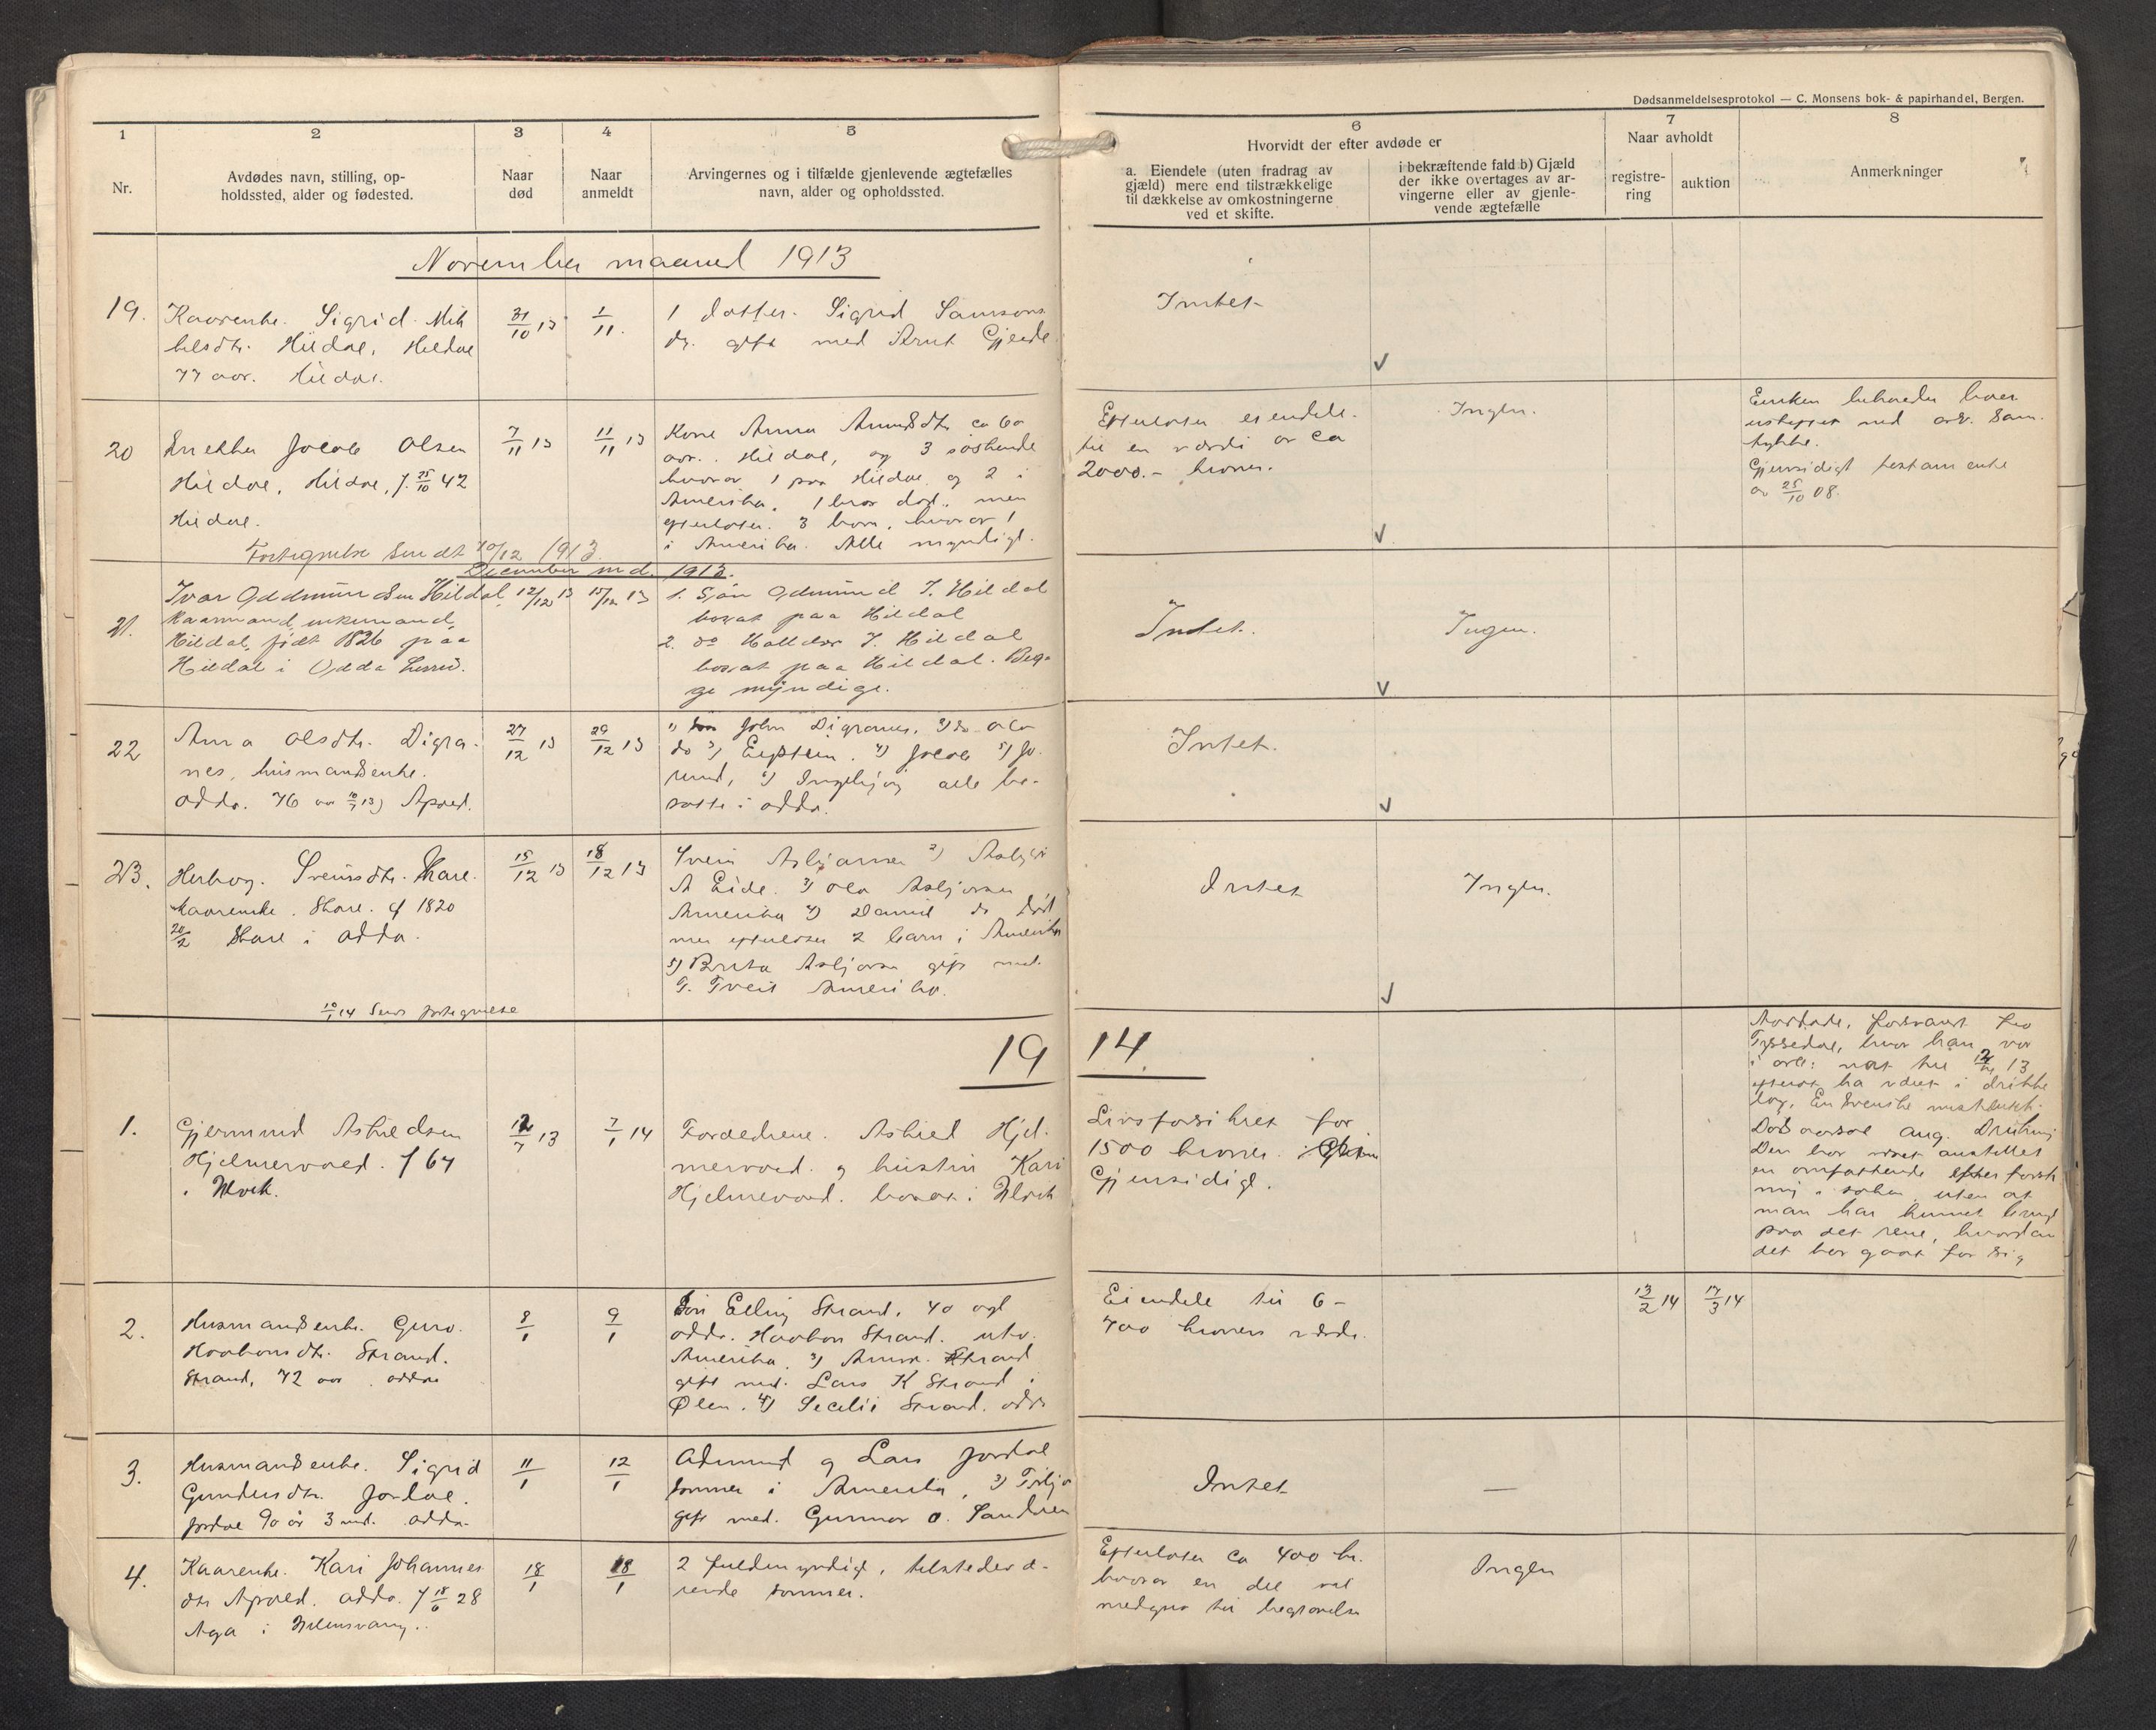 Dødsanmeldelsesprotokol — C. Monsens bok- & papirhandel, Bergen.
1
2
3
4
5
6
7
8
Nr.
Avdødes navn, stilling, op-
holdssted, alder og fødested.
Naar
død
Naar
anmeldt
Arvingernes og i tilfælde gjenlevende ægtefælles
navn, alder og opholdssted.
Hvorvidt der efter avdøde er
a. Eiendele (uten fradrag av
gjæld) mere end tilstrækkelige
til dækkelse av omkostningerne
ved et skifte.
i bekræftende fald b) Gjæld
der ikke overtages av ar-
vingerne eller av gjenle-
vende ægtefælle
Naar avholdt
registre-
ring
auktion
Anmerkninger
November maaned 1913
19.
Kaarenke. Sigrid
Hildal, Hildal
77 aar. Hildal.
31/10 13
1/11.
1 datter. Sigrid Samsons
dr. gift med Arnt Gjerde
Intet
20
Enkem. Jacob Olsen
Hildal, Hildal, f. 25/10 42
Hildal.
7/11 13
11/11 13
Kone Anna Amundsdtr ca 60
aar. Hildal, og 3 søskende
hvorav 1 paa Hildal og 2 i
Amerika. 1 bror død, men
efterlater 3 barn, hvorav 1
i Amerika. Alle myndige.
Efterlater eiendele
til en værdi av ca
2000.- kroner.
Ingen.
Enken behandler boet
uskiftet med arv. sam-
tykke.
Gjensidigt testamente
av 25/10 08.
Fortegnelse sendt 10/12 1913.
December md. 1913.
21.
Ivar Oddmundsen Hildal
Kaarmand, enkemand,
Hildal, født 1826 paa
Hildal i Odda Herred.
12/12 13
15/12 13
1. Søn Odmund I. Hildal
bosat paa Hildal
2. do Halldor I. Hildal
bosat paa Hildal. Beg-
ge myndige.
Intet.
Ingen.
22
Anna Olsdtr. Digra-
nes, husmandsenke.
Odda. 76 aar Apold.
27/12 13
29/12 13
1) John Digranes, 2) do Ola
do 3) Eystein. 4) Jacob 5)
6) Ingebjørg alle bo-
satte i Odda.
Intet.
23.
Herborg. Sveinsdtr. Skare.
Kaarenke. Skare. f 1820
20/2 Skare i Odda.
15/12 13
18/12 13
Svein Asbjørnsen 2)
A Eide. 3) Ola Asbjørnsen
Amerika 4) Daniel do død
men efterlater 2 barn i Amerika
5) Brita Asbjørnsen gift med
T. Tveit Amerika.
Intet
Ingen.
10/1 14 Sendt fortegnelse
19 14.
1.
Gjermund Asbiedsen
Hjelmervoed. f 64
i Ulvik.
12/7 13
7/1 14
Forældrene. Hjel-
mervoed. og hustru Kari
Hjelmevoed. bosat i Ulvik
Livsforsikret for
1500 kroner i
Gjensidige.
forsvant fra
Tyssedal, hvor han var
i arb. nat til 13
efterat ha været i drikke-
lag. En Svenske mistænkt.
Dødsaarsak ang. Drukning
Der har været anstillet
en omfattende efterforsk-
ning i saken, uten at
man har kunnet bringe
paa det rene, hvordan
det har gaat for sig
2.
Husmandsenke. Guro.
Haakonsdtr. Strand.
Strand, 72 aar. Odda
8/1
9/1
Søn Elling Strand, 40
Odda. Haakon Strand. utv.
Amerika. 3) Anna. Strand
gift med. Lars K Strand i
Ølen. 4) Secelie Strand. Odda
Eiendele til 6-
700 kroners værdi.
13/2 14
17/3 14
3.
Husmandsenke. Sigrid
Gundersdtr. Jordal.
Jordal 90 år 3 md. Odda.
11/1
12/1
Odmund og Lars Jordal
sønner i Amerika, 3)
gift med. Gunnar O. Sandven
Intet
—
4.
Kaarenke. Kari Johannes
dtr Apold. Odda. f 18/6 28
Aga i Ullensvang.
18/1
18/1
2 fuldmyndige, tilstedevæ-
rende sønner.
Efterlater ca 400 kr.
hvorav en del vil
medgaa til begravelse
Ingen